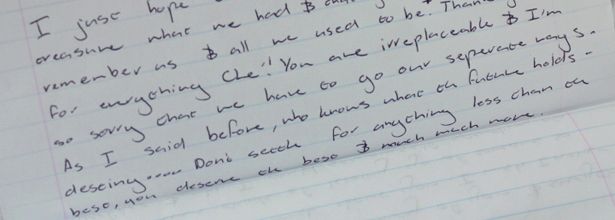 I just hope
treasure what we had &
remember us & all we used to be. Thank
for everything Che!! You are irreplaceable & I'm
so sorry that we have to go our seperate ways.
As I said before, who knows what th future holds -
destiny.... Don't settle for anything less than th
best, you deserve th best & much much more.